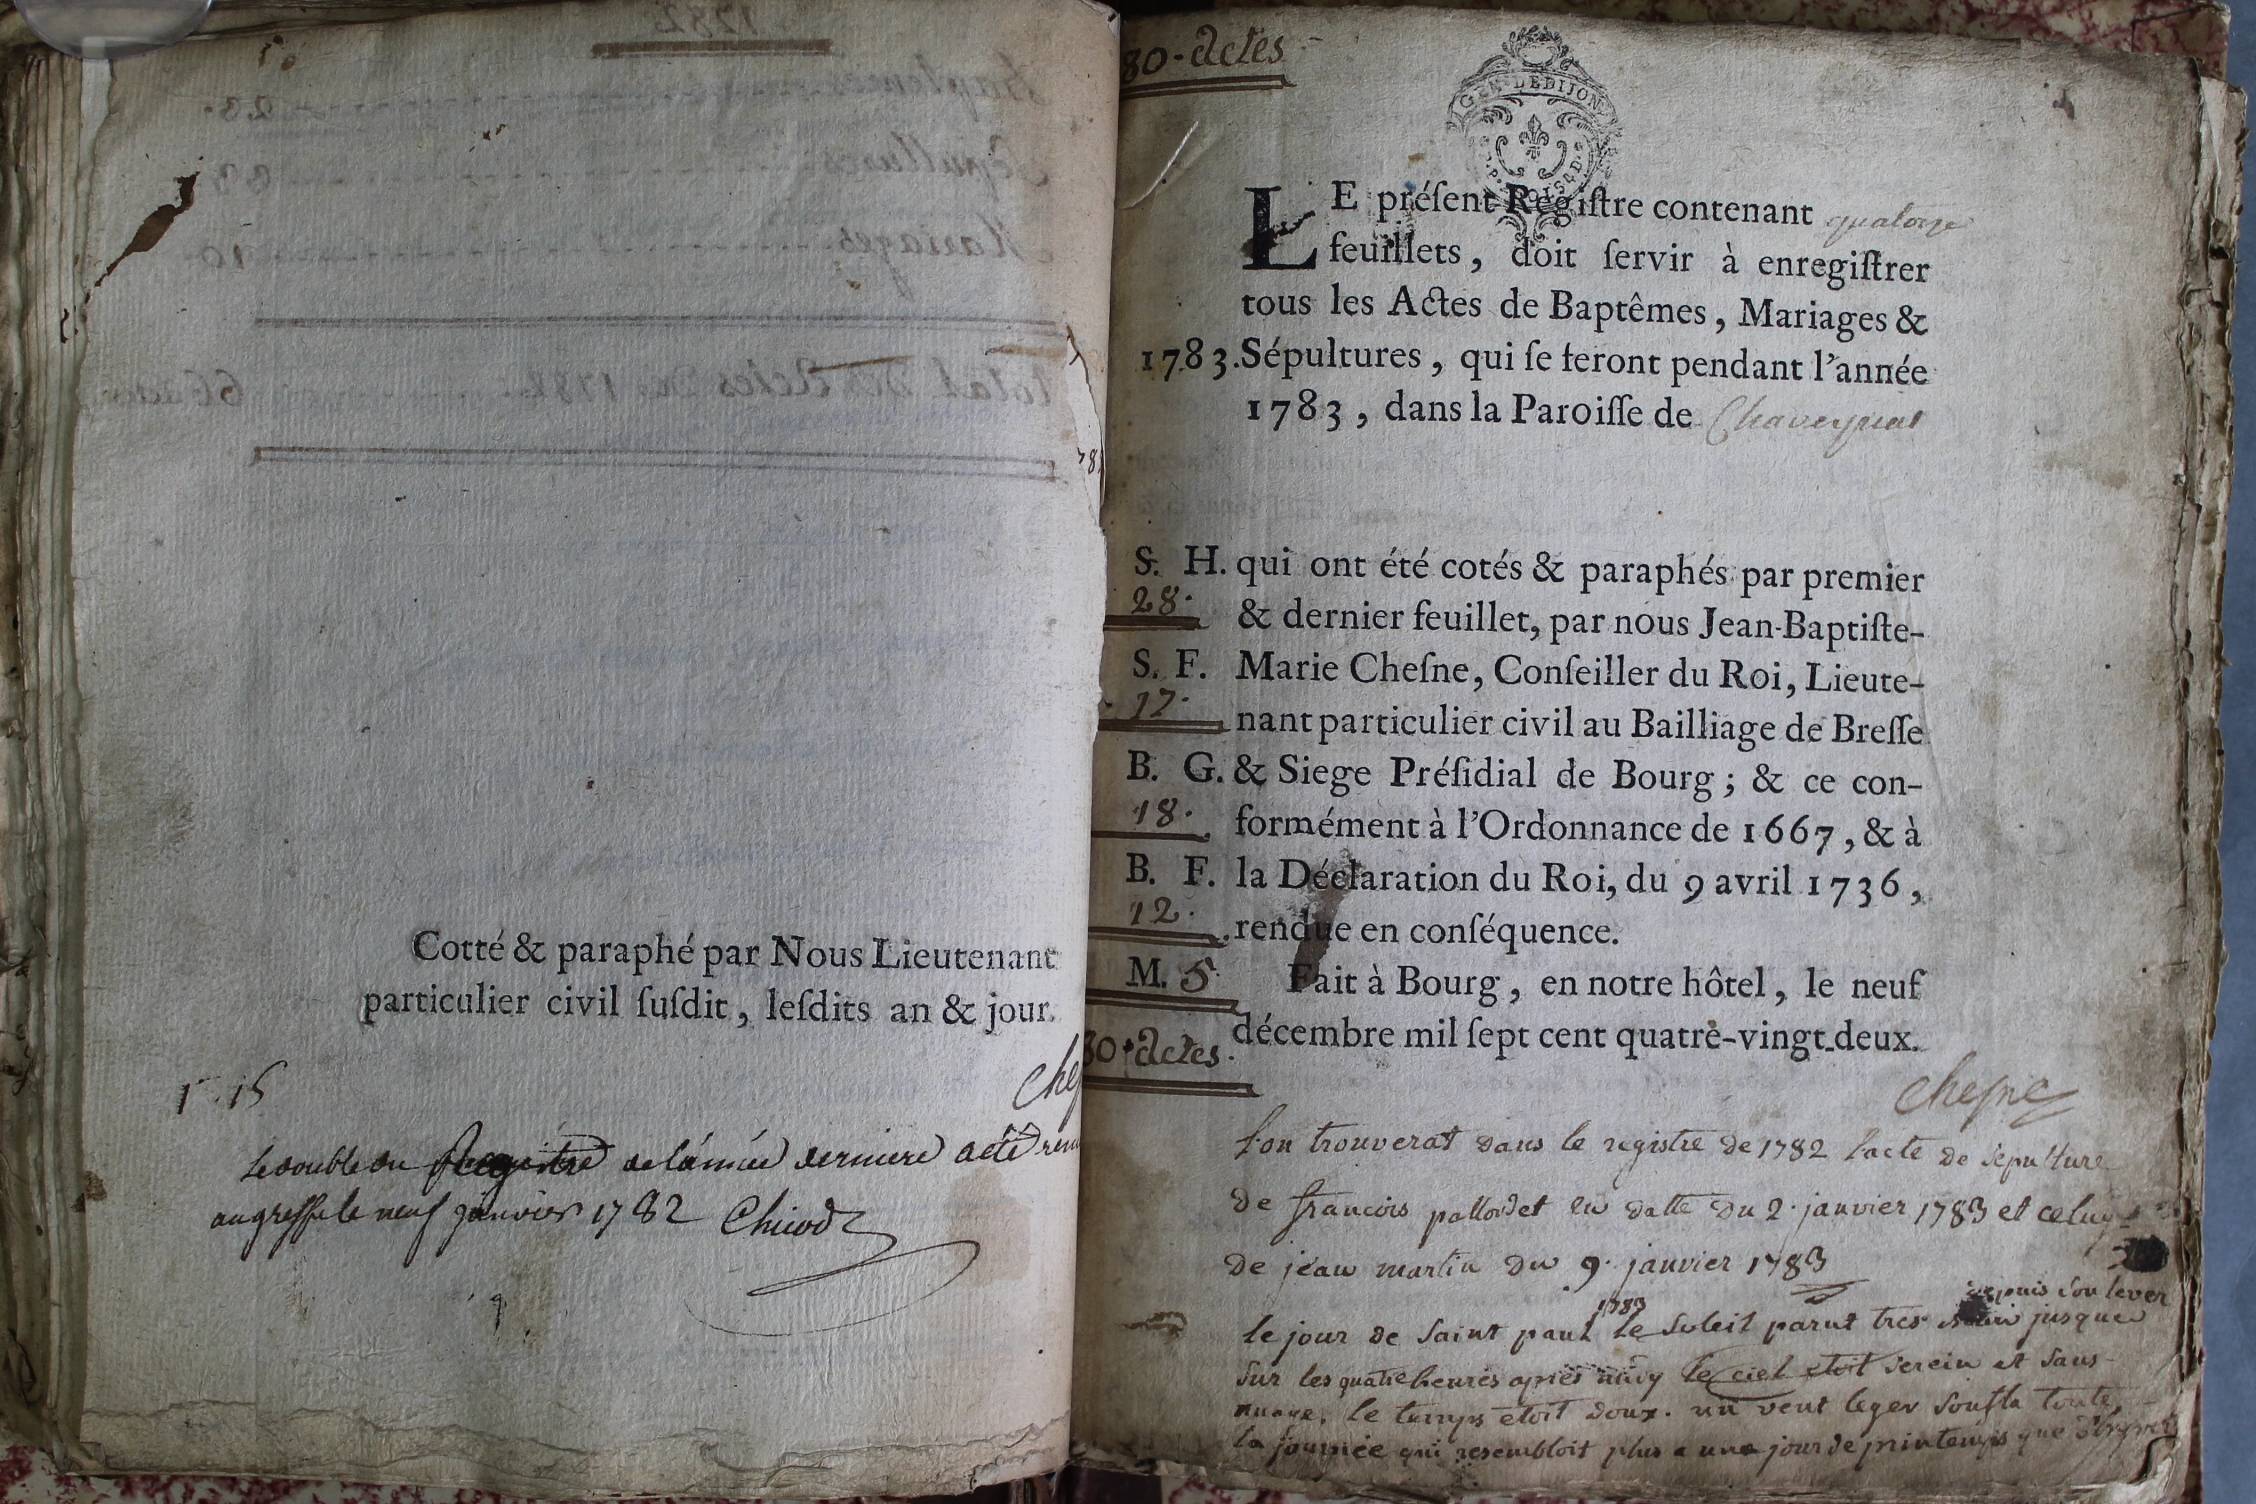 Cotté & paraphé par Nous Lieutenant
particulier civil ſuſdit, leſdits an & jour.
1 . 15
Che
Le double du Regiſtre de l'année derniere a été
au greffe le neuf janvier 1782 Chicod
80 - Actes
GEN. DE DIJON
LE préſent Regiſtre contenant quatorze
feuillets, doit ſervir à enregiſtrer
tous les Actes de Baptêmes, Mariages &
1783. Sépultures, qui ſe feront pendant l'année
1783, dans la Paroiſſe de Chaveyriat
S. H. qui ont été cotés & paraphés par premier
28. & dernier feuillet, par nous Jean-Baptiſte-
S. F. Marie Cheſne, Conſeiller du Roi, Lieute-
17. nant particulier civil au Bailliage de Breſſe
B. G. & Siege Préſidial de Bourg; & ce con-
18. formément à l'Ordonnance de 1667, & à
B. F. la Déclaration du Roi, du 9 avril 1736,
12. rendue en conſéquence.
M. 5. Fait à Bourg, en notre hôtel, le neuf
décembre mil ſept cent quatre-vingt-deux.
80 · Actes.
Cheſne
l'on trouverat dans le registre de 1782 l'acte de sepulture
de francois pallordet en datte du 2. janvier 1783 et celuy
de jean martin du 9. janvier 1783
depuis son lever
le jour de saint paul 1783 le soleil parut tres clair jusque
sur les quatre heures apries midy le ciel etoit serein et sans
nuage. le temps etoit doux. un vent leger soufla toute
la journée qui resembloit plus a une jour de printemps que d'hyver